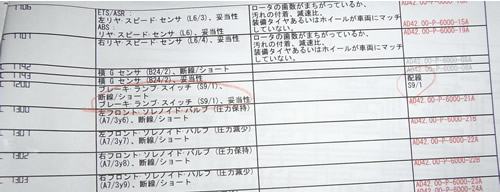 ETS/ASR :
左リヤ・スピード・センサ (L6/3)、妥当性
ABS
リヤ・スピード・センサ (L6)、妥当性
右リヤ・スピード・センサ (L6/4)、妥当性
ロータの歯数がまちがっているか、
汚れの付着、減速比、
装備タイヤあるいはホイールが車両にマッチ
していない。
ロータの歯数がまちがっているか、
汚れの付着、減速比、
装備タイヤあるいはホイールが車両にマッチ
していない。
AD42.00-P-6000-15A
AD42.00-P-6000-19A
横 G センサ (B24/2)、断線/ショート
横 G センサ (B24/2)、妥当性
ブレーキ・ランプ・スイッチ (S9/1)、
断線/ショート
ブレーキ・ランプ・スイッチ (S9/1)、妥当性
配線
S9/1
AD42.00-P-6000-21A
左フロント・ソレノイド・バルブ (圧力保持)
(A7/3y6)、断線/ショート
AD42.00-P-6000-22A
左フロント・ソレノイド・バルブ (圧力減少)
(A7/3y7)、断線/ショート
AD42.00-P-6000-22B
右フロント・ソレノイド・バルブ (圧力保持)
(A7/3y8)、断線/ショート
AD42.00-P-6000-23A
右フロント・ソレノイド・バルブ (圧力減少)
(A7/3y9)、断線/ショート